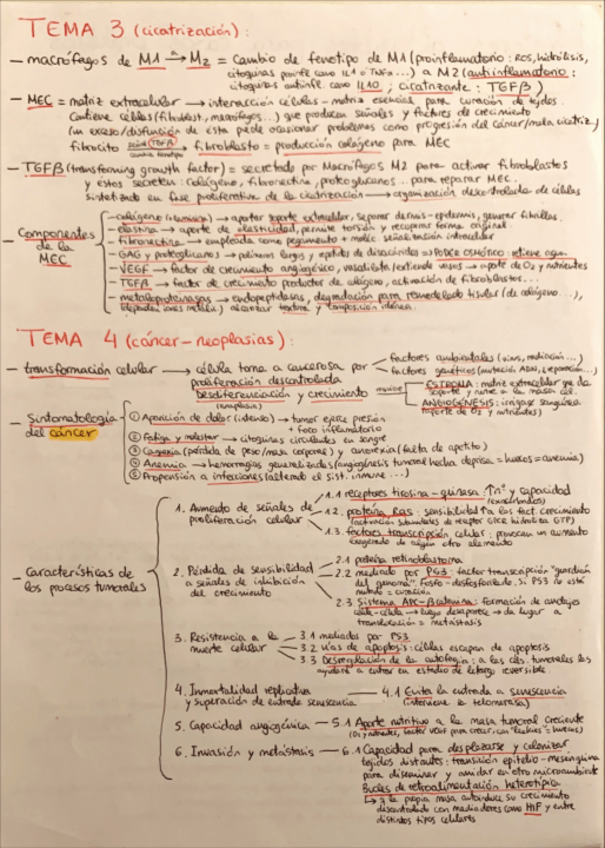 TEMA 3 (cicatrización):
- macrófagos de M1 a→ M2 = Cambio de fenotipo de M1 (proinflamatorio: ROS, hidrólisis,
citoquinas proinfl como IL1 o TNFα...) a M2 (antiinflamatorio:
citoquinas antiinfl. como IL10; cicatrizante: TGFβ)
- MEC = matriz extracelular → interacción células-matriz esencial para curación de tejidos.
Contiene células (fibroblast, macrófagos...) que producen señales y factores de crecimiento
(un exceso/disfunción de ésta puede ocasionar problemas como progresión del cáncer/mala cicatriz)
fibrocito señal (TGFβ) → cambio fenotipo fibroblasto = producción colágeno para MEC
- TGFβ (transforming growth factor) = secretado por Macrófagos M2 para activar fibroblastos
y éstos secreten: colágeno, fibronectina, proteoglucanos... para reparar MEC.
sintetizado en fase proliferativa de la cicatrización → organización descontrolada de células
- Componentes de la MEC
- colágeno → aportar soporte extracelular, separar dermis-epidermis, generar fibrillas.
- elastina → aporte de elasticidad, permite torsión y recuperar forma original.
- fibronectina → empleada como pegamento + moléc señalización intracelular
- GAG y proteoglicanos → polímeros largos y repetidos de disacáridos ⇒ PODER OSMÓTICO: retiene agua.
- VEGF → factor de crecimiento angiogénico, vasodilata/extiende vasos → aporte de O2 y nutrientes
- TGFβ → factor de crecimiento productor de colágeno, activación de fibroblastos...
- metaloproteinasas → endopeptidasas, degradación para remodelado tisular (de colágeno...),
(dependen iones metálic) alcanzar textura y composición idónea.
TEMA 4 (cáncer-neoplasias):
- transformación celular → célula torna a cancerosa por
factores ambientales (virus, radiación...)
factores genéticos (mutación ADN, reparación...)
proliferación descontrolada
Desdiferenciación y crecimiento
(anaplasia)
ESTROMA: matriz extracelular que da
soporte y nutre a la masa cel.
ANGIOGÉNESIS: irrigac sanguínea
(aporte de O2 y nutrientes)
- Sintomatología del cáncer
① Aparición de dolor (intenso) → tumor ejerce presión
+ foco inflamatorio
② Fatiga y malestar → citoquinas circulantes en sangre
③ Caquexia (pérdida de peso/masa corporal) y anorexia (falta de apetito)
④ Anemia → hemorragias generalizadas (angiogénesis tumoral hecha deprisa = huecos = anemia)
⑤ Propensión a infecciones (alterado el sist. inmune...)
- Características de los procesos tumorales
1. Aumento de señales de proliferación celular
1.1 receptores tirosina-quinasa: ↑nº y capacidad
1.2. proteína Ras: sensibilidad ↑ a los fact. crecimiento
1.3 factores transcripción celular: provocan un aumento
exagerado de algún otro elemento
2. Pérdida de sensibilidad a señales de inhibición del crecimiento
2.1 proteína retinoblastoma
2.2 mediado por P53: factor transcripción "guardián
del genoma". Fosfo-desfosforilado. Si P53 no está
mutado = curación
2.3 Sistema APC-βcatenina: formación de anclajes
célula-célula → luego desaparece → da lugar a
translocación = metástasis
3. Resistencia a la muerte celular
3.1 mediados por P53
3.2 vías de apoptosis: células escapan de apoptosis
3.3 Desregulación de la autofagia: a las céls. tumorales les
ayudará a entrar en estadio de letargo reversible.
4. Inmortalidad replicativa y superación de entrada senescencia
4.1 Evita la entrada a senescencia
(interviene la telomerasa)
5. Capacidad angiogénica
5.1 Aporte nutritivo a la masa tumoral creciente
(O2 y nutrientes, factor VEGF para crecer, con huecos)
6. Invasión y metástasis
6.1 Capacidad para desplazarse y colonizar
tejidos distantes: transición epitelio-mesénquima
para diseminar y anidar en otro microambiente
Bucles de retroalimentación heterotípica
↳ la propia masa autoinduce su crecimiento
descontrolado con mediadores como HIF y entre
distintos tipos celulares